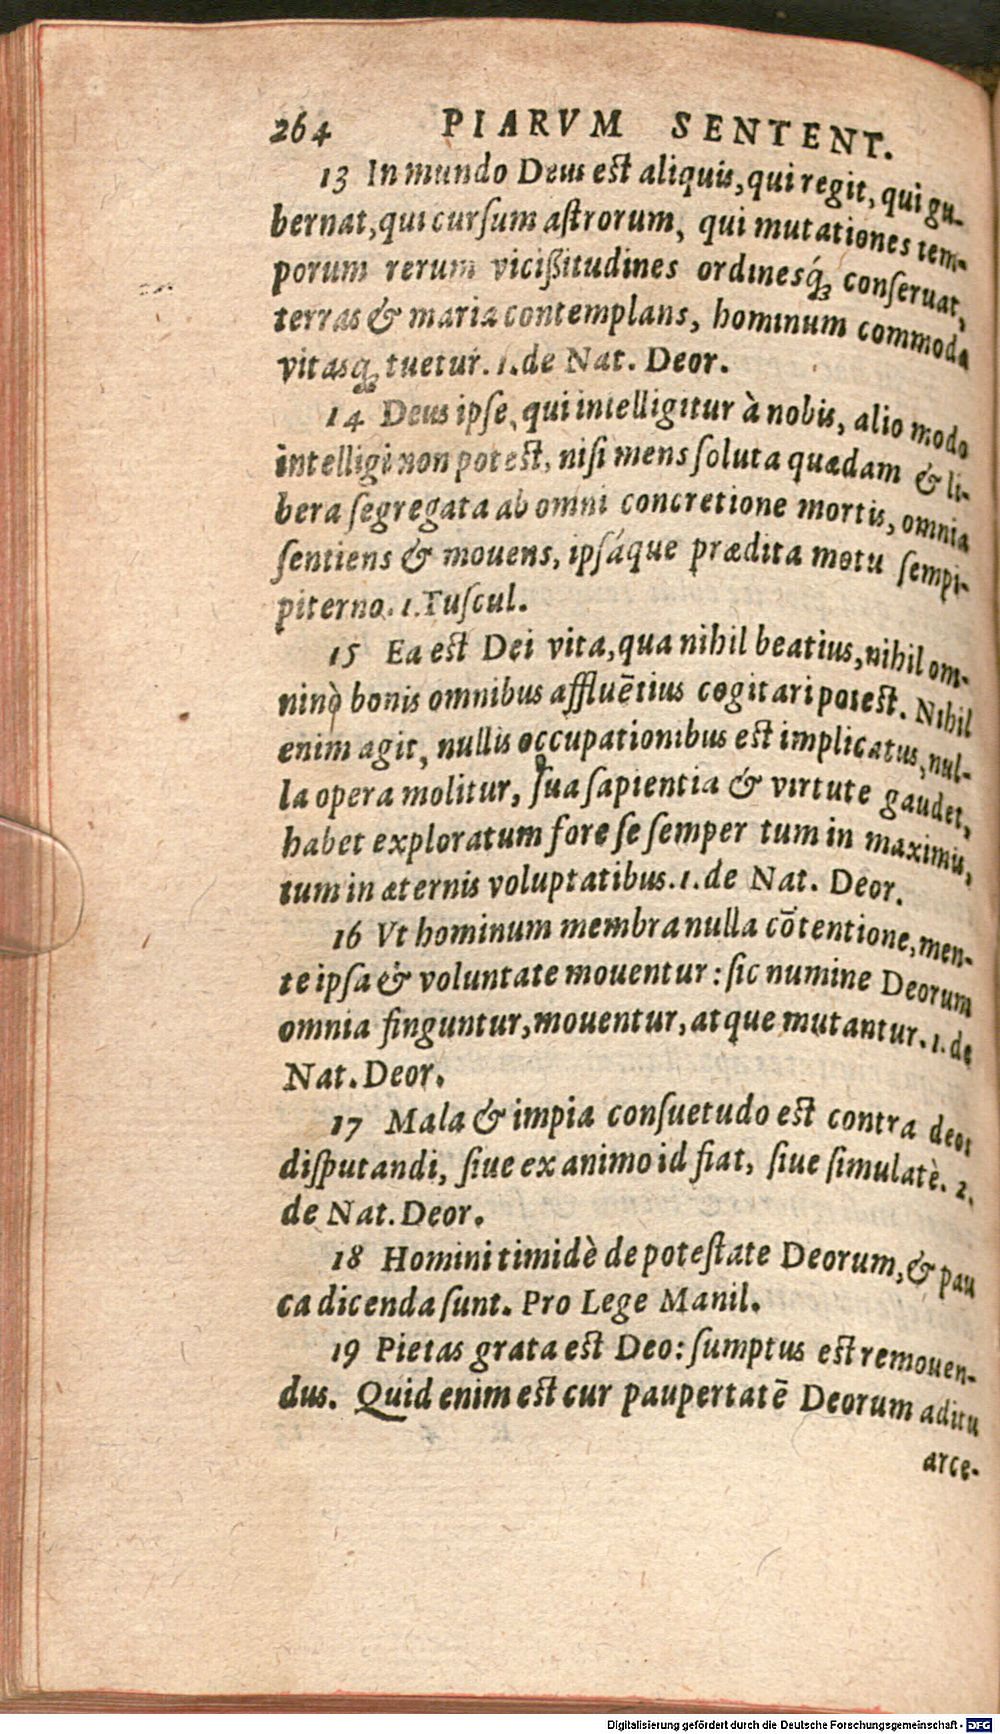 264 PIARVM SENTENT.
13 In mundo Deus est aliquis, qui regit, qui gu-
bernat, qui cursum astrorum, qui mutationes tem-
porum rerum vicißitudines ordinesq́ꝫ conseruat,
terras & maria contemplans, hominum commoda
vitasqꝫ tuetur. 1. de Nat. Deor.
14 Deus ipse, qui intelligitur à nobis, alio modo
intelligi non potest, nisi mens soluta quædam & li-
bera segregata ab omni concretione mortis, omnia
sentiens & mouens, ipsáque prædita motu sempi-
piterno. 1. Tuscul.
15 Ea est Dei vita, qua nihil beatius, nihil om-
ninò bonis omnibus affluẽtius cogitari potest. Nihil
enim agit, nullis occupationibus est implicatus, nul-
la opera molitur, sua sapientia & virtute gaudet,
habet exploratum fore se semper tum in maximis,
tum in æternis voluptatibus. 1. de Nat. Deor.
16 Vt hominum membra nulla cõtentione, men-
te ipsa & voluntate mouentur: sic numine Deorum
omnia finguntur, mouentur, atque mutantur. 1. de
Nat. Deor.
17 Mala & impia consuetudo est contra deos
disputandi, siue ex animo id fiat, siue simulatè. 2.
de Nat. Deor.
18 Homini timidè de potestate Deorum, & pau
ca dicenda sunt. Pro Lege Manil.
19 Pietas grata est Deo: sumptus est remouen-
dus. Quid enim est cur paupertatẽ Deorum aditu
arce-
Digitalisierung gefördert durch die Deutsche Forschungsgemeinschaft - DFG